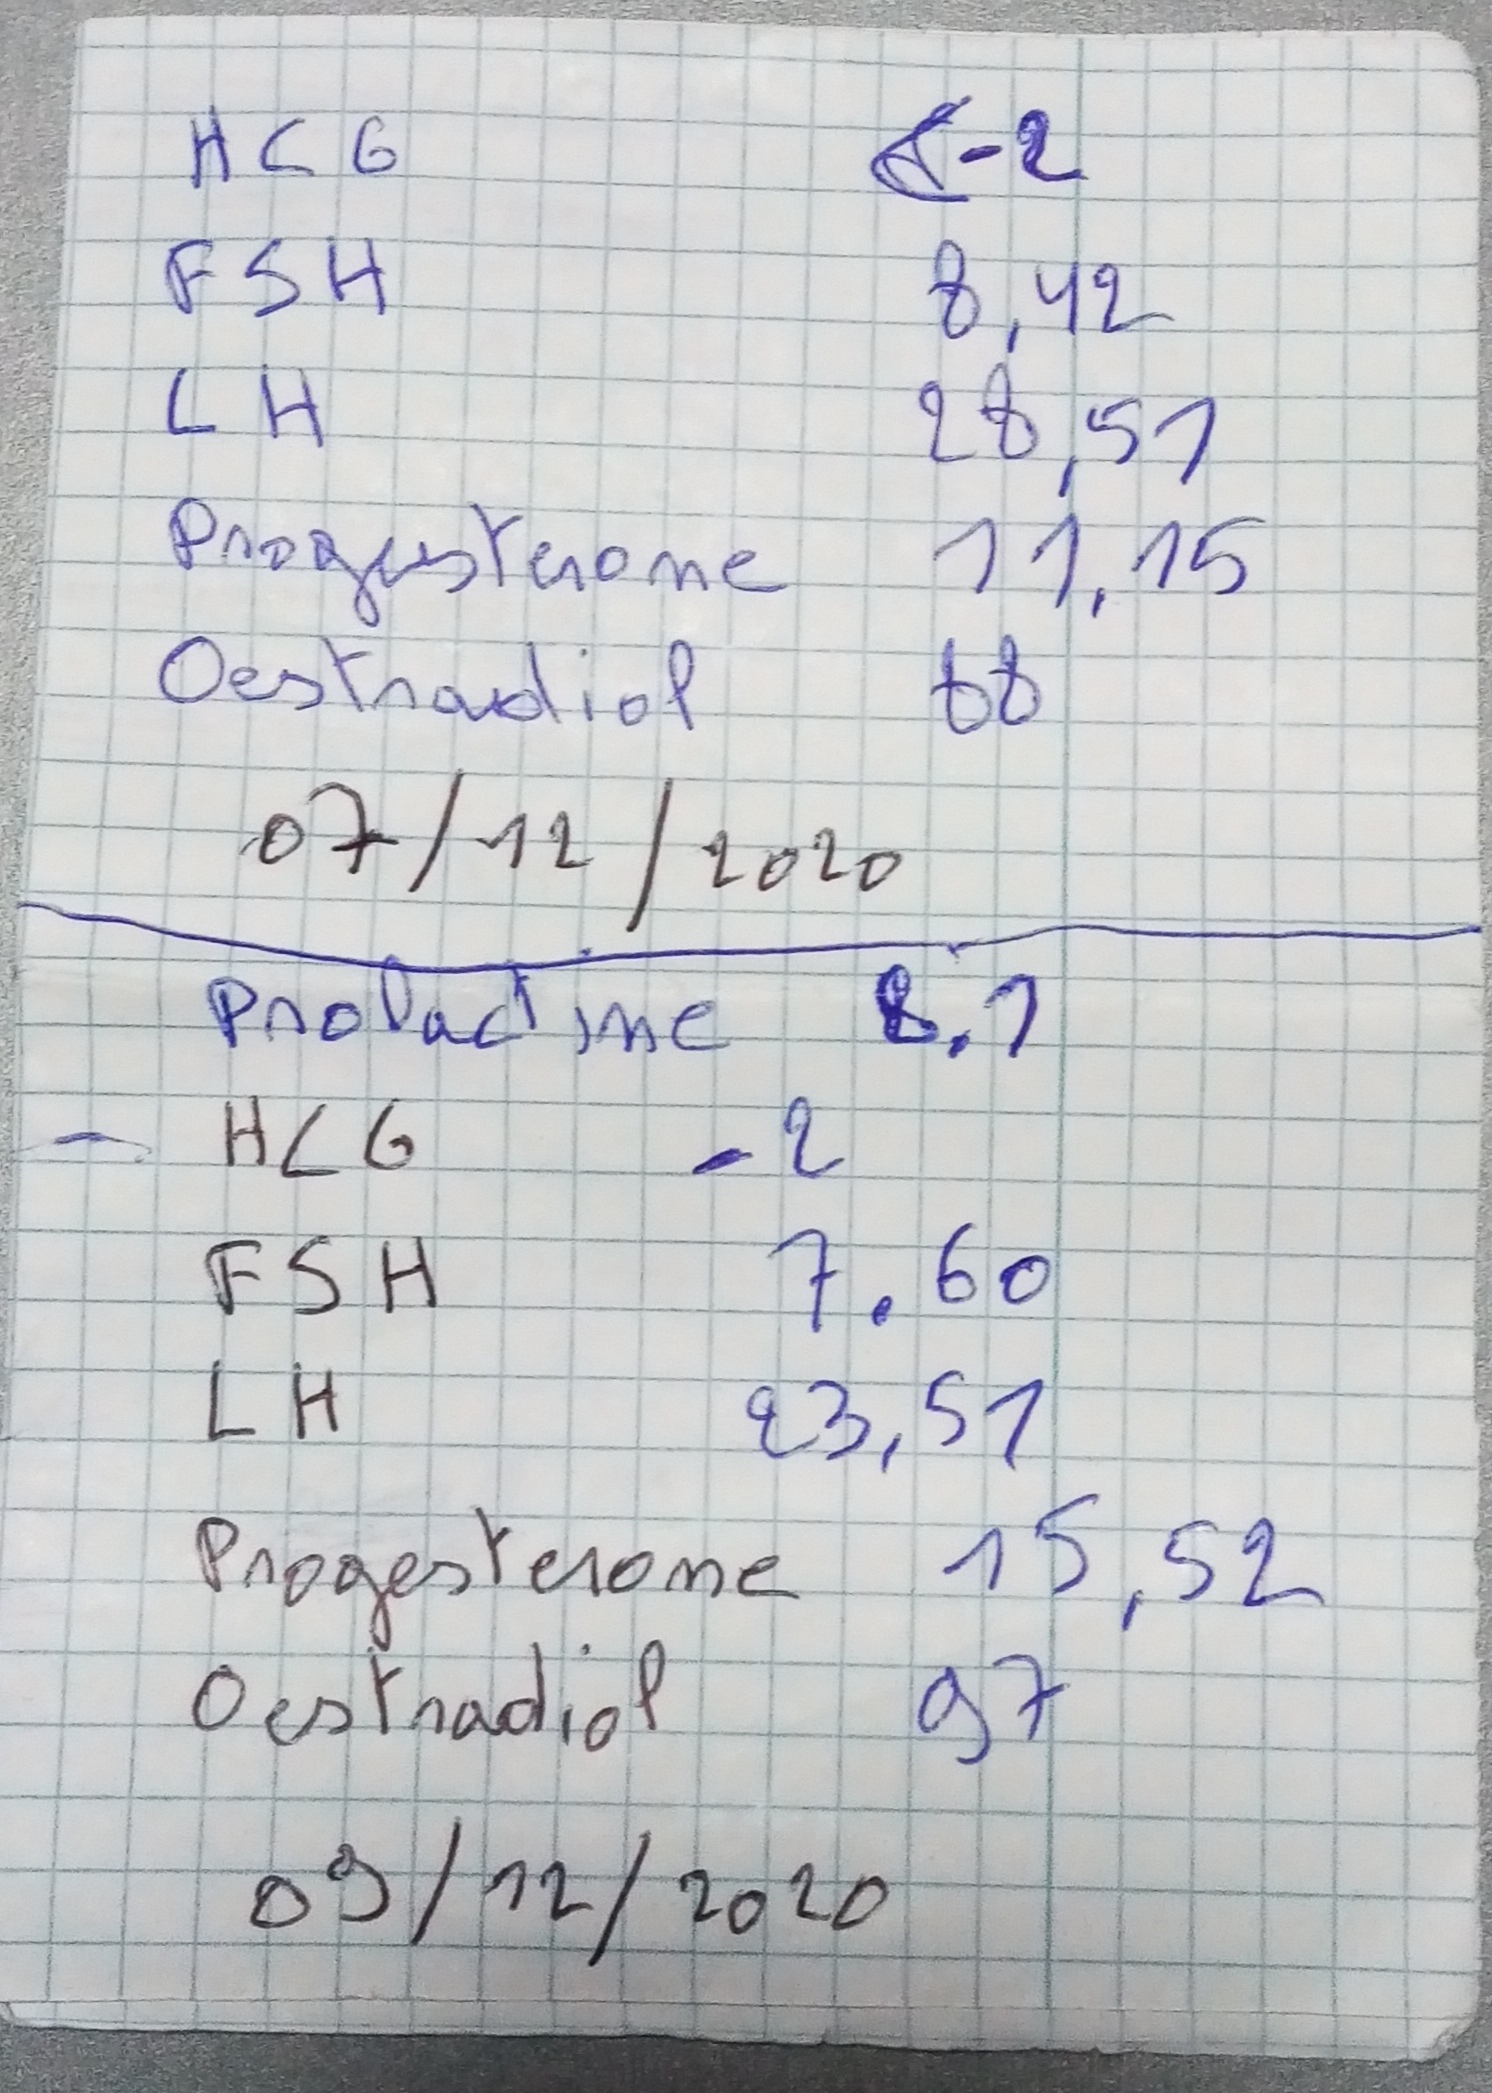 HCG -2
FSH 8,42
LH 28,51
Progesterone 11,15
Oestradiol 88
07/12/2020
Prolactine 8.1
- HCG - 2
FSH 7.60
LH 23,51
Progesterone 15,52
Oestradiol 97
09/12/2020